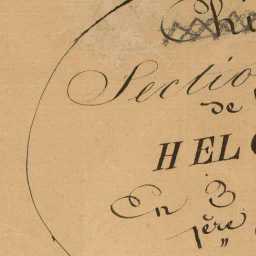 Chi
Sectio
de
HELO
En 3
1ère
"